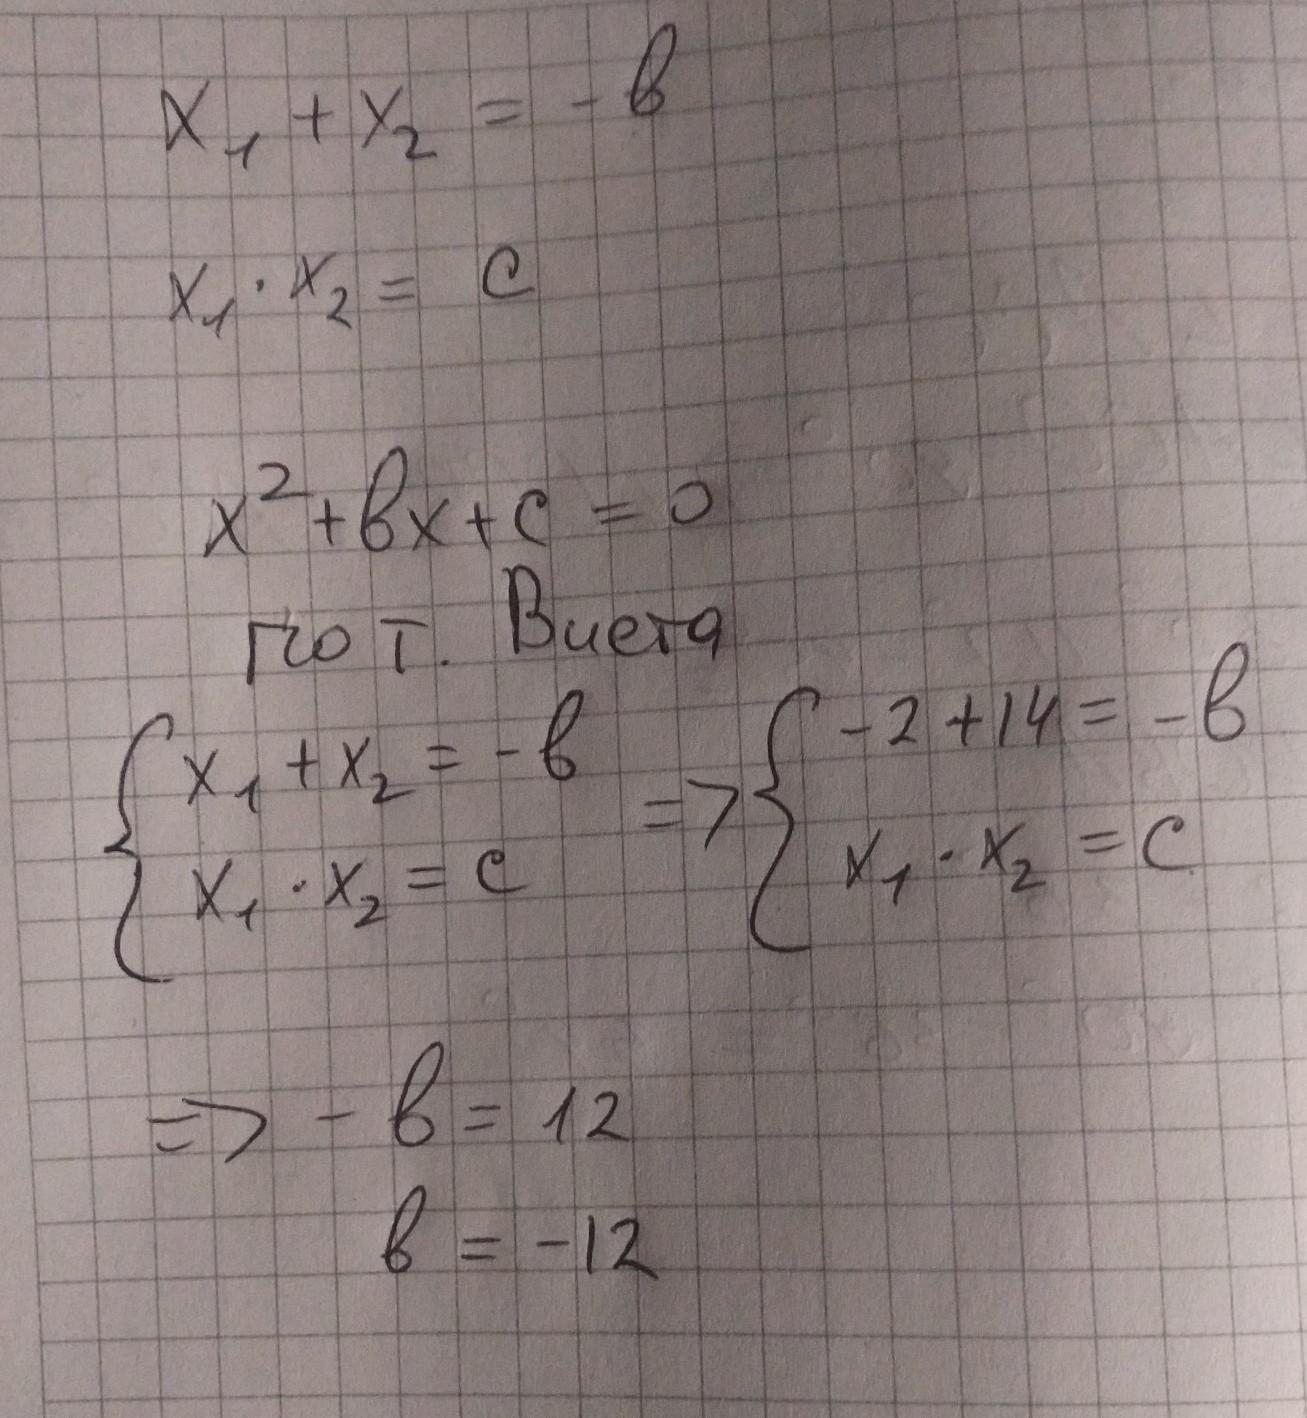 x₁ + x₂ = - в
x₁ · x₂ = c
x² + вx + c = 0
по т. Виета
{ x₁ + x₂ = - в => { -2 + 14 = - в
x₁ · x₂ = c x₁ · x₂ = c
=> - в = 12
в = -12